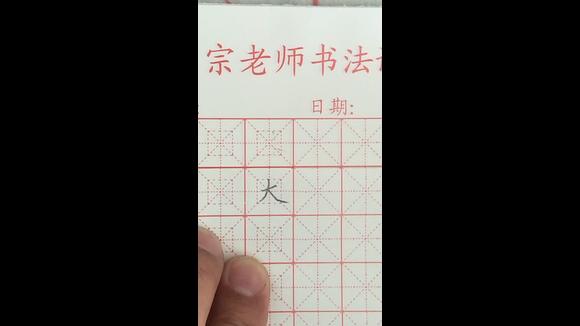 宗老师书法
日期:
大